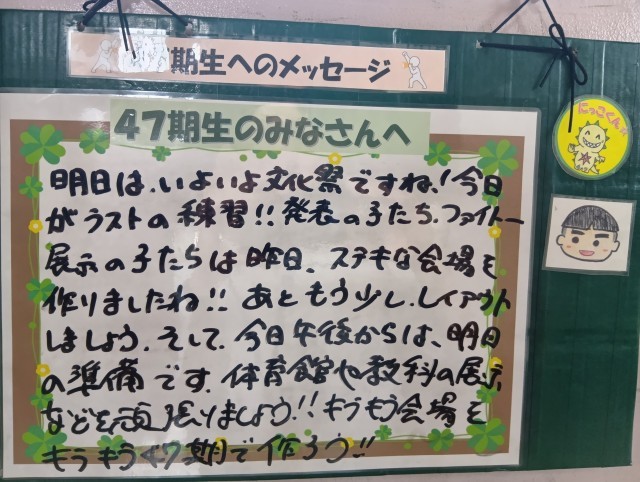 期生へのメッセージ
47期生のみなさんへ
明日は、いよいよ文化祭ですね!今日
がラストの練習!!発表の子たち、ファイトー
展示の子たちは昨日、ステキな会場を
作りましたね!!あともう少し、レイアウト
しましょう。そして、今日午後からは、明日
の準備です。体育館や教科の展示
などを頑張りましょう!!もうもう会場を
もうもう47期で作ろう!!
にっこくん☆